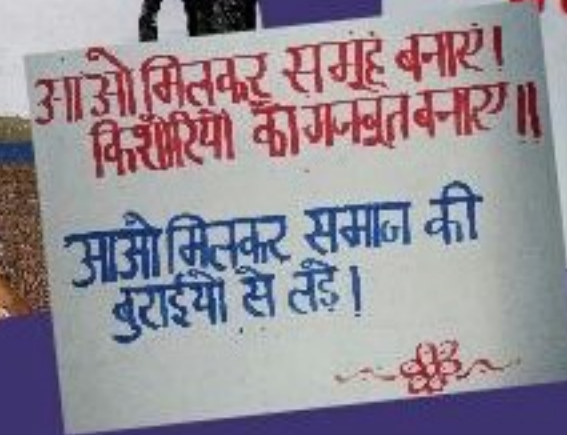 आओ मिलकर समूह बनाएं।
किशोरियों को मजबूत बनाएं॥
आओ मिलकर समाज की
बुराईयों से लड़े।